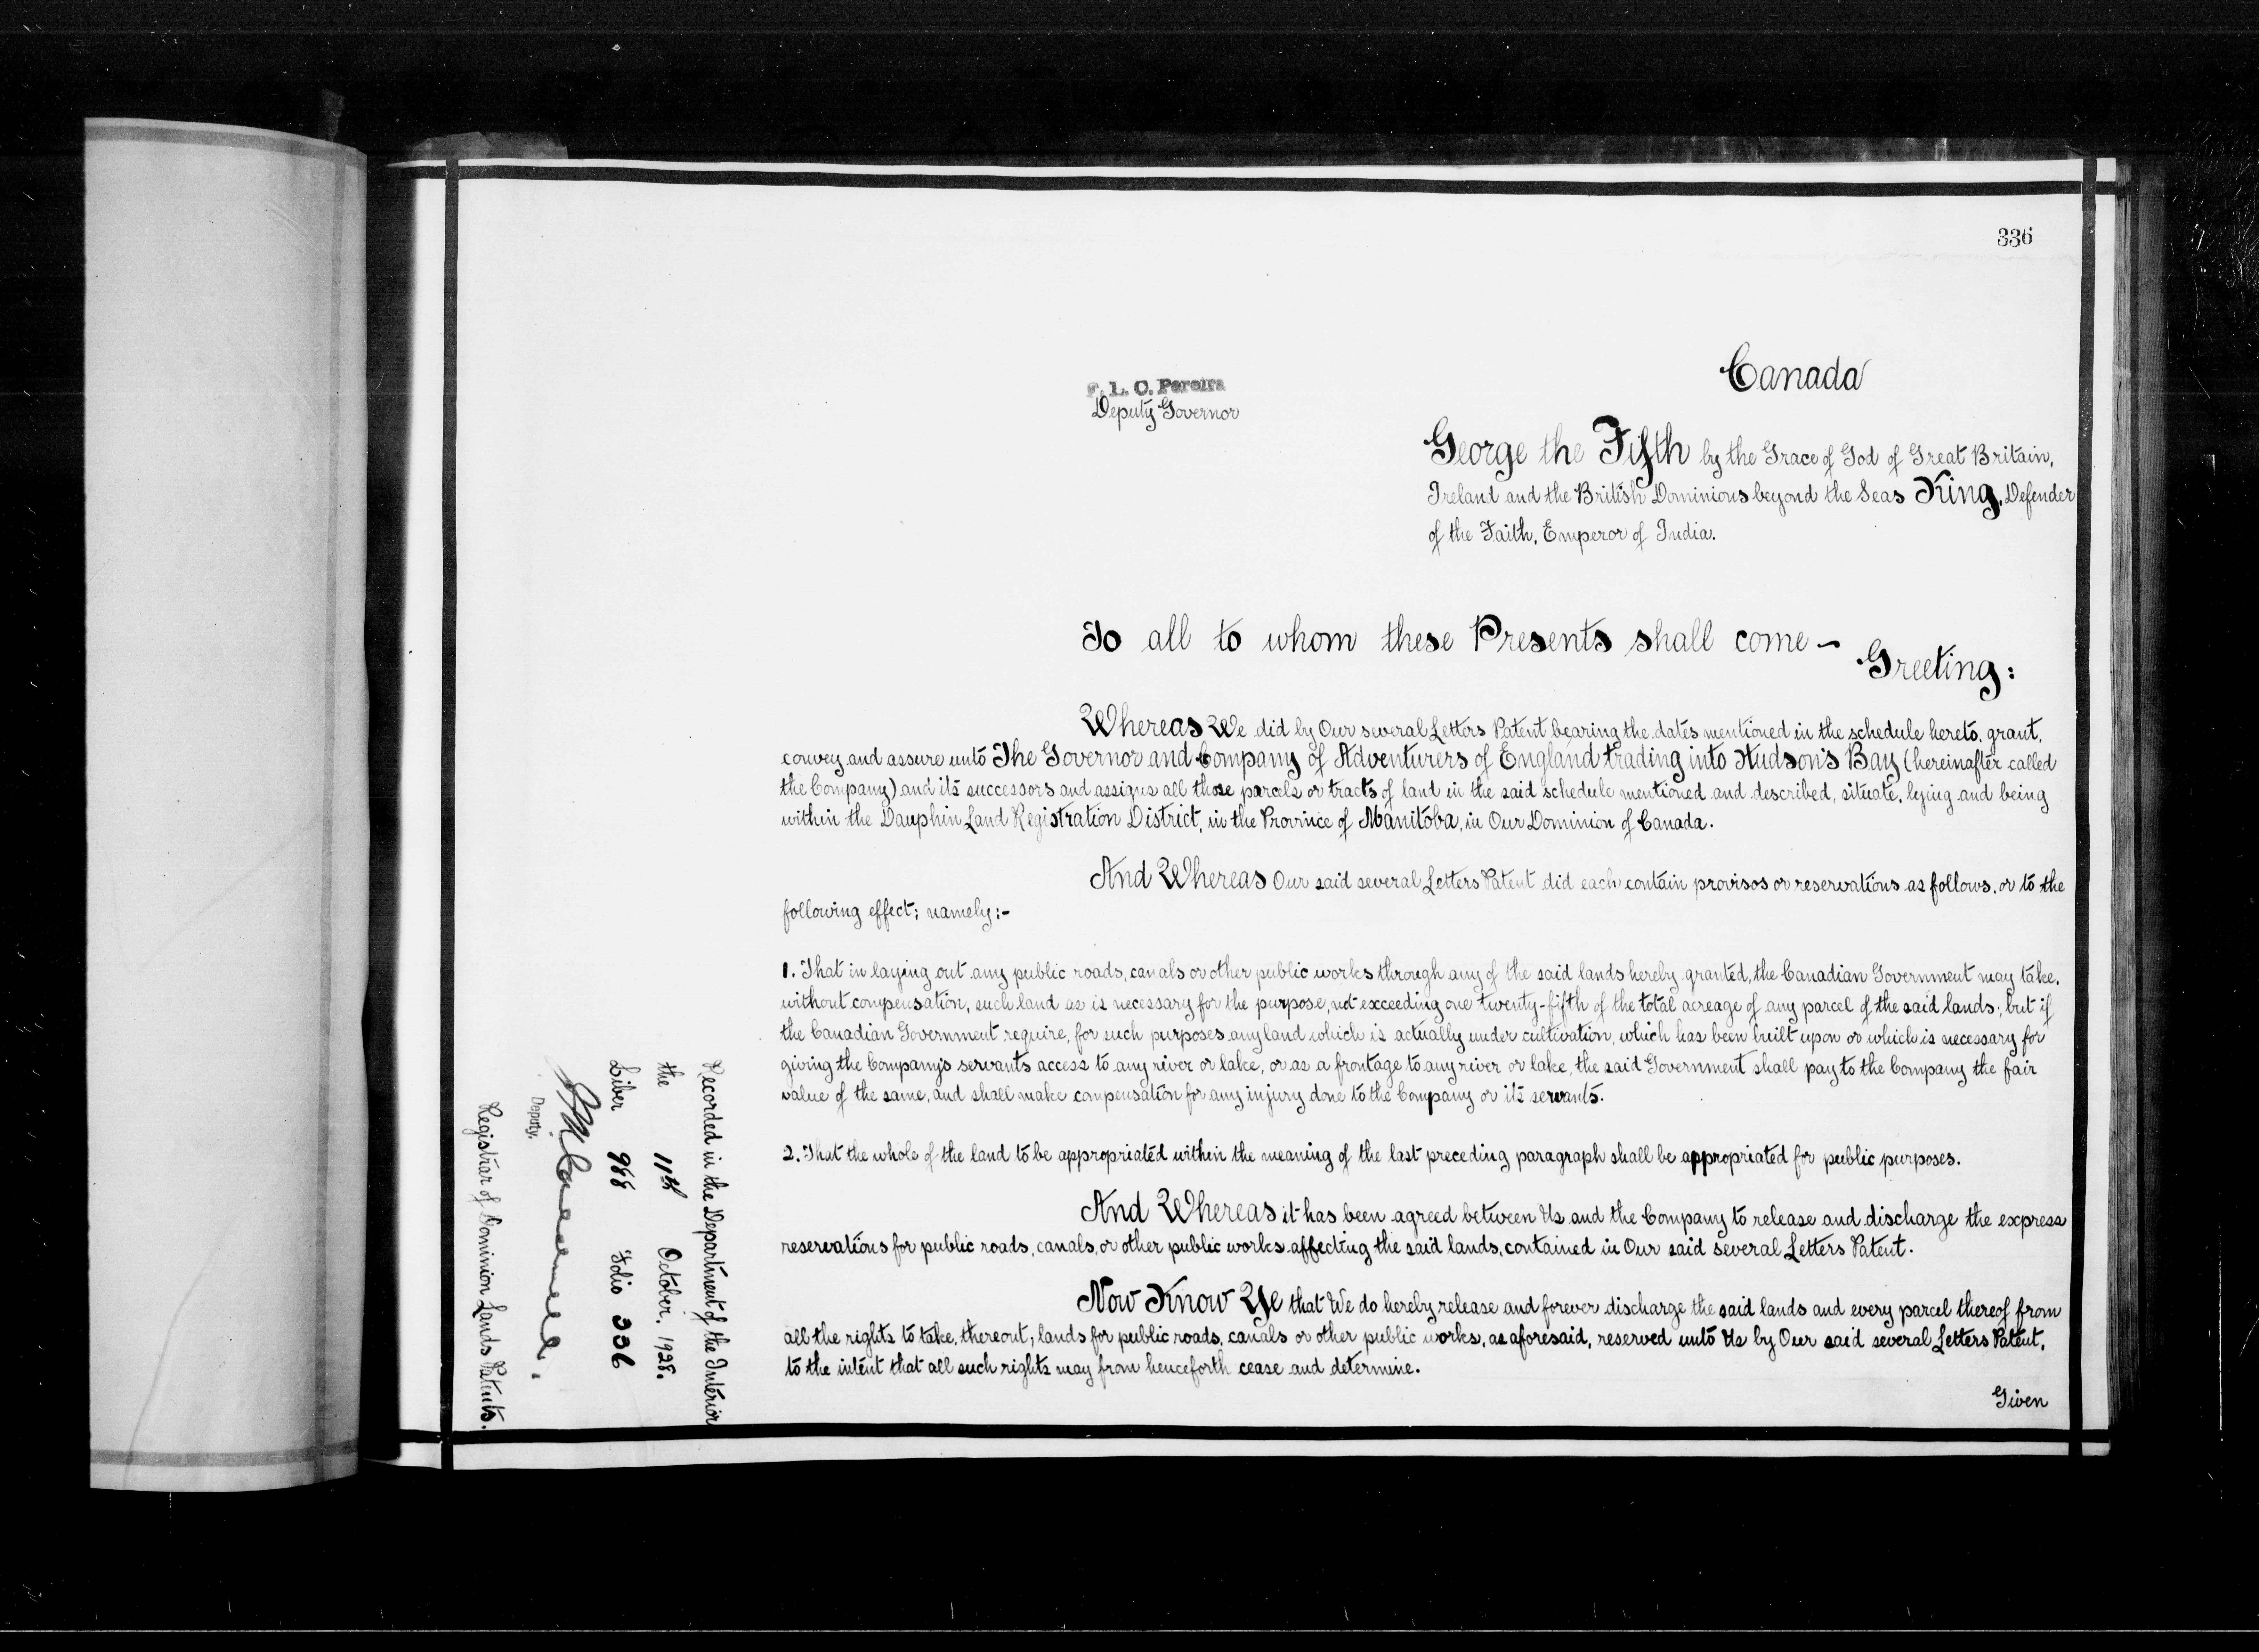 336
Canada
F. L. C. Pereira
Deputy Governor
George the Fifth by the Grace of God of Great Britain,
Ireland and the British Dominions beyond the Seas King, Defender
of the Faith, Emperor of India.
To all to whom these Presents shall come –
Greeting:
Whereas We did by Our several Letters Patent bearing the dates mentioned in the schedule hereto, grant,
convey and assure unto The Governor and Company of Adventurers of England trading into Hudson's Bay (hereinafter called
the Company) and its successors and assigns all those parcels or tracts of land in the said schedule mentioned and described, situate, lying and being
within the Dauphin Land Registration District, in the Province of Manitoba, in Our Dominion of Canada.
And Whereas Our said several Letters Patent did each contain provisos or reservations as follows, or to the
following effect; namely:-
1. That in laying out any public roads, canals or other public works through any of the said lands hereby granted, the Canadian Government may take,
without compensation, such land as is necessary for the purpose, not exceeding one twenty-fifth of the total acreage of any parcel of the said lands; but if
the Canadian Government require, for such purposes any land which is actually under cultivation, which has been built upon or which is necessary for
giving the Company's servants access to any river or lake, or as a frontage to any river or lake, the said Government shall pay to the Company the fair
value of the same, and shall make compensation for any injury done to the Company or its servants.
2. That the whole of the land to be appropriated within the meaning of the last preceding paragraph shall be appropriated for public purposes.
And Whereas it has been agreed between Us and the Company to release and discharge the express
reservations for public roads, canals, or other public works affecting the said lands, contained in Our said several Letters Patent.
Now Know Ye that We do hereby release and forever discharge the said lands and every parcel thereof from
all the rights to take, thereout, lands for public roads, canals or other public works, as aforesaid, reserved unto Us by Our said several Letters Patent,
to the intent that all such rights may from henceforth cease and determine.
Given
Recorded in the Department of the Interior
the 11th October, 1928.
Liber 988 Folio 336
Deputy.
Registrar of Dominion Lands Patents.